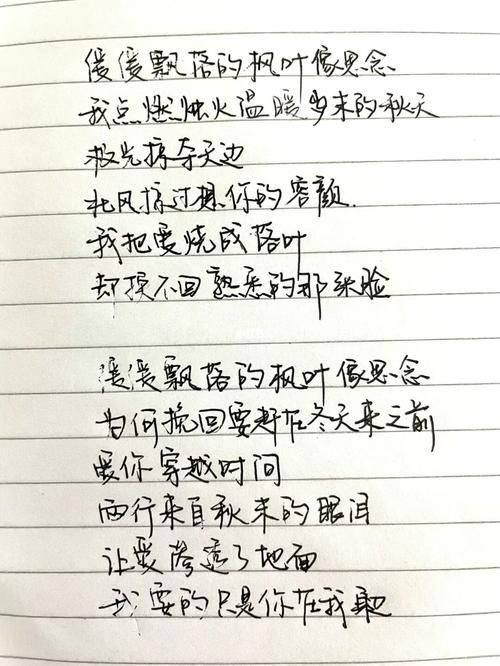 缓缓飘落的枫叶像思念
我点燃烛火温暖岁末的秋天
极光掠夺天边
北风掠过想你的容颜.
我把爱烧成落叶
却换不回熟悉的那张脸
缓缓飘落的枫叶像思念
为何挽回要赶在冬天来之前
爱你穿越时间
两行来自秋末的眼泪
让爱渗透了地面
我要的只是你在我